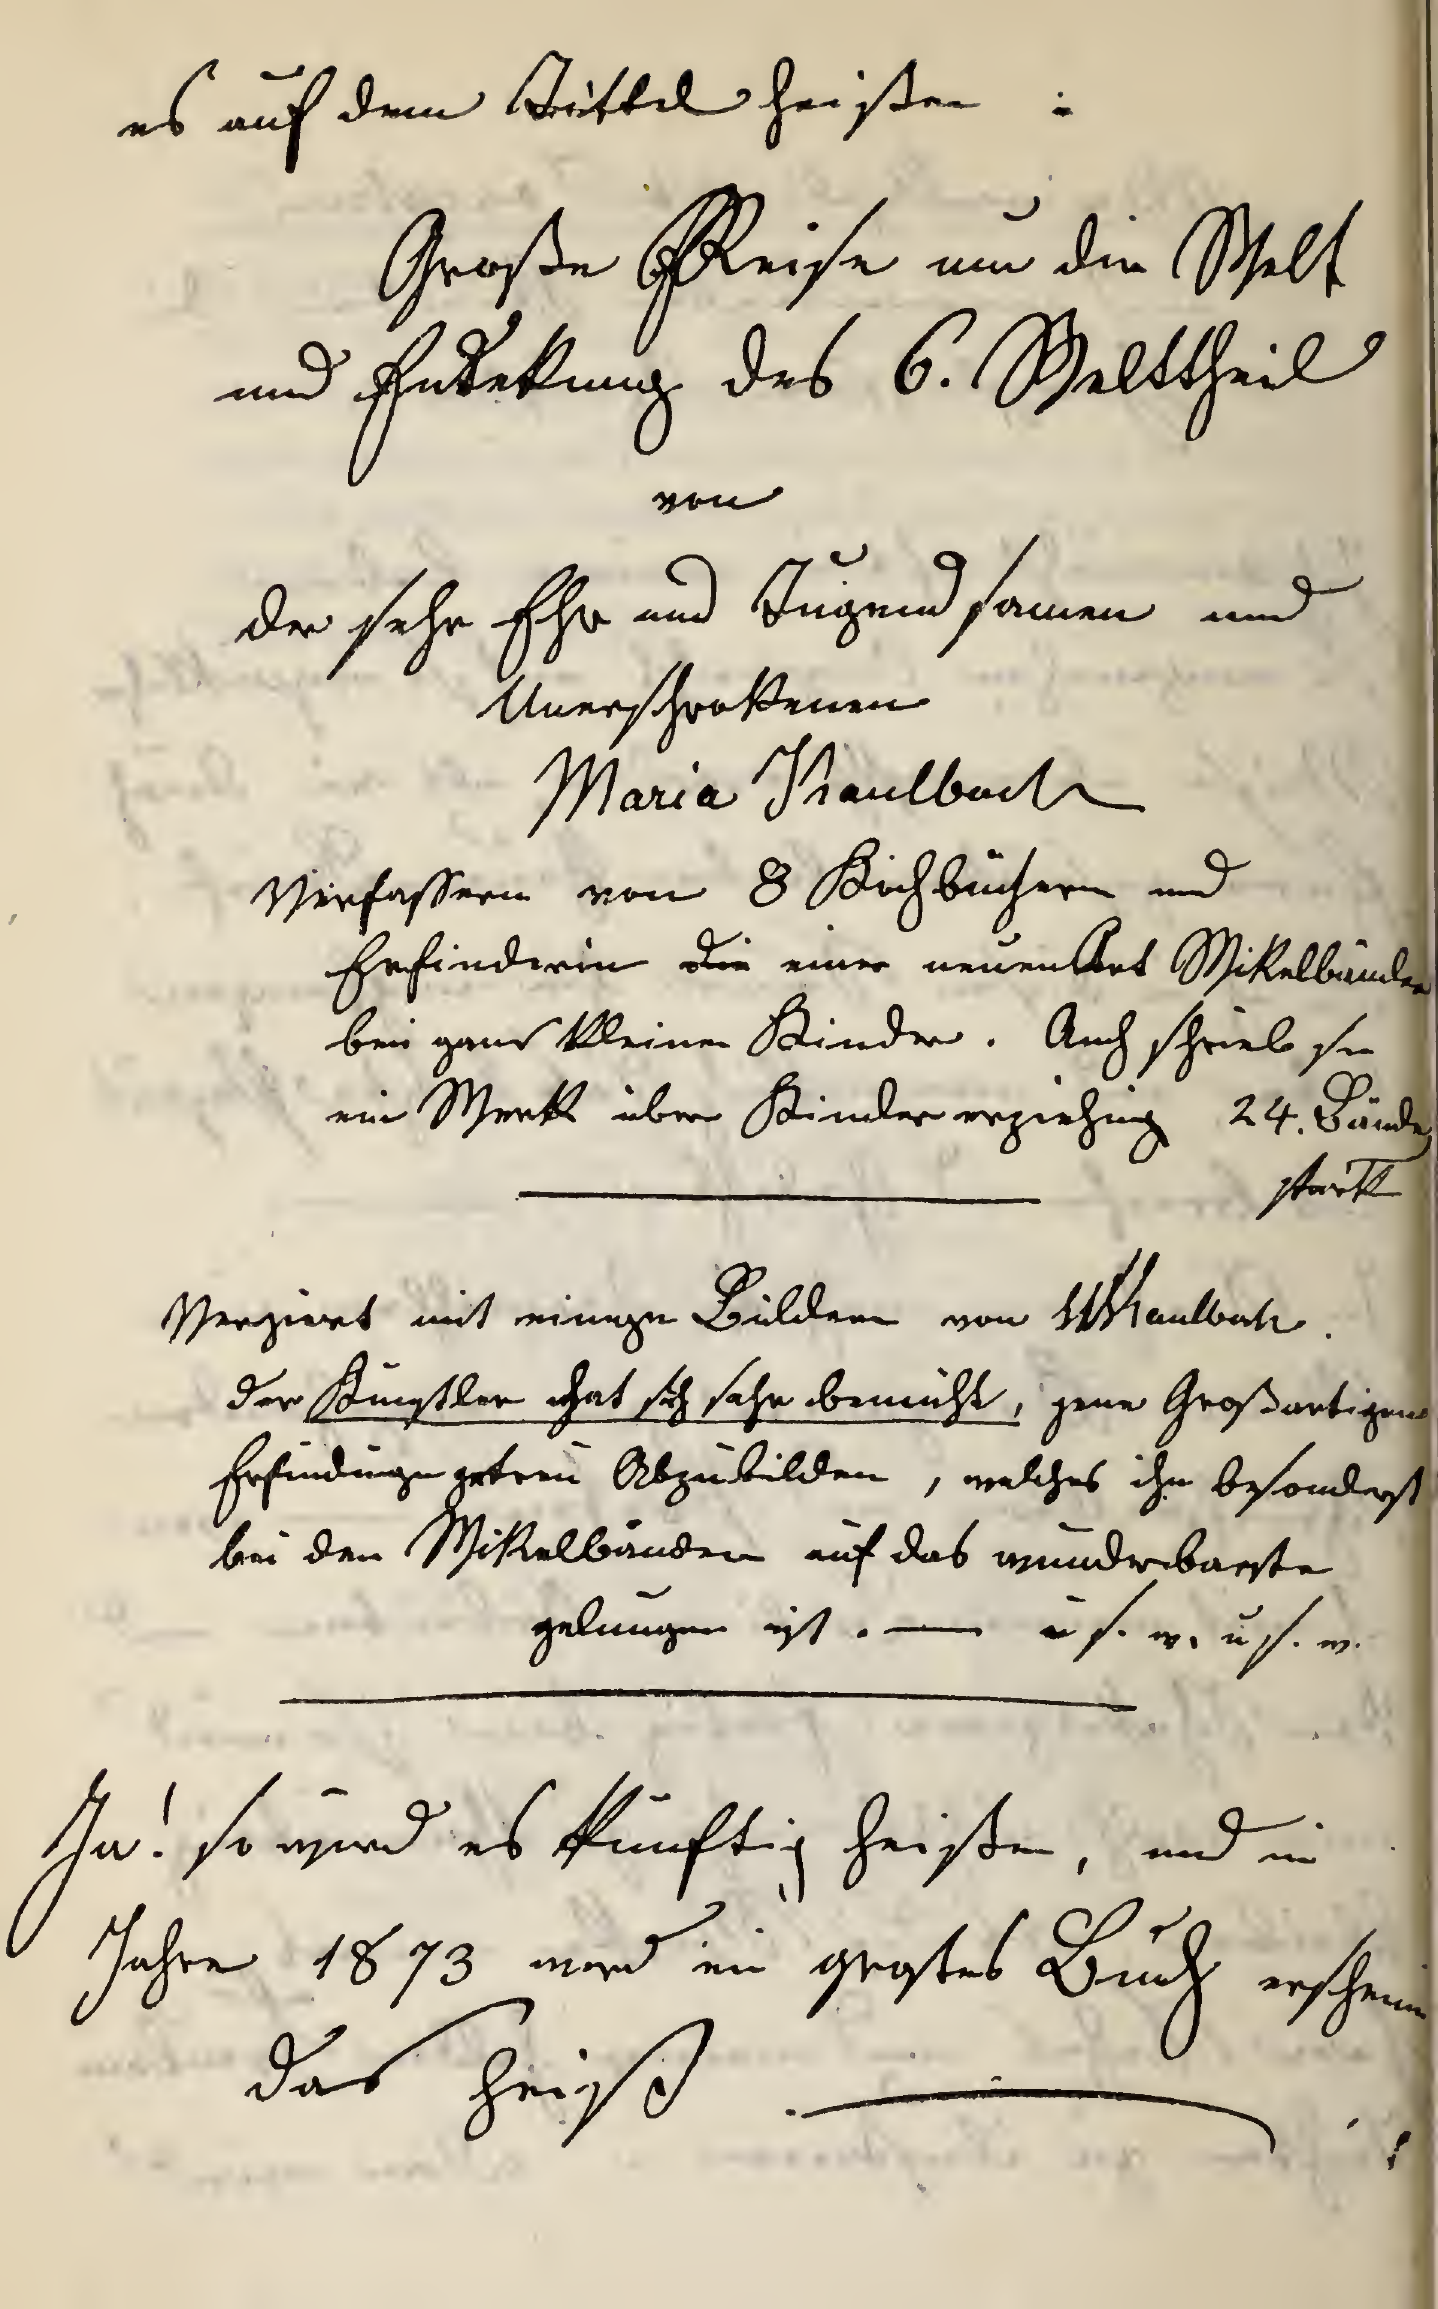 es auf dem Tittel heißen :
Große Reise um die Welt
und Entdekung des 6. Welttheil
von
der sehr Ehr und Tugendsamen und
Unerschrokenen
Maria Kaulbach
Verfassern von 8 Kochbüchern und
Erfinderin die einer neuen Art Wikelbänder
bei ganz kleinen Kinder. Auch schrieb sie
ein Werk über Kindererziehung 24. Bände
stark
Verziert mit einigen Bildern von WKaulbach.
der Künstler hat sich sehr bemüht, jene Großartigen
Erfindungen getreu Abzubilden, welches ihm besonderst
bei den Wikelbänden auf das wunderbarste
gelungen ist. — u s. w. u s. w.
Ja! so wird es künftig heißen, und im
Jahre 1873 wird ein großes Buch erscheinen
das heißt — !